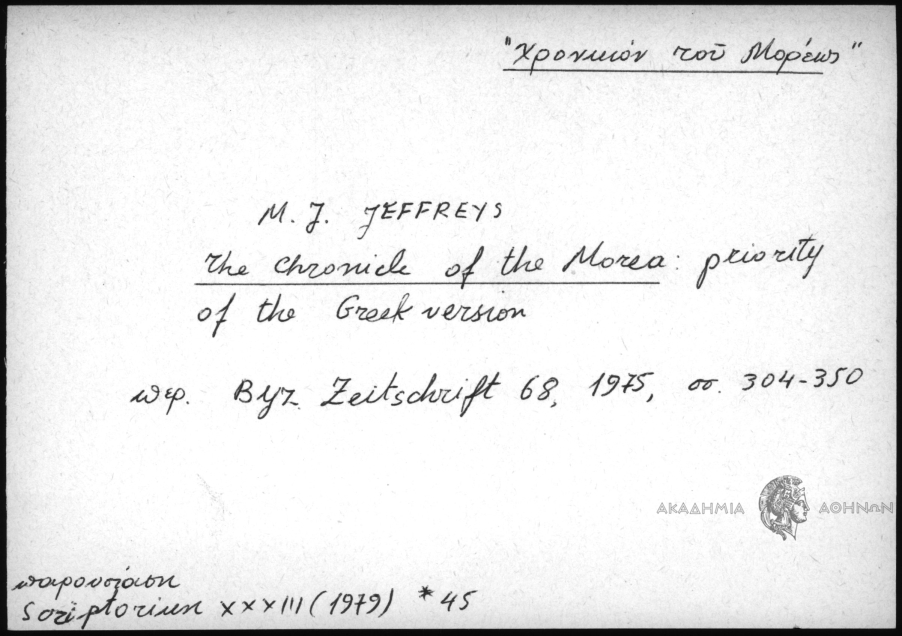 "Χρονικόν τοῦ Μορέως"
M. J. JEFFREYS
The Chronicle of the Morea: priority
of the Greek version
περ. Byz. Zeitschrift 68, 1975, σσ. 304-350
ΑΚΑΔΗΜΙΑ ΑΘΗΝΩΝ
παρουσίαση
Scriptorium XXXIII (1979) *45